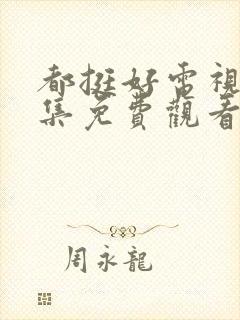 都挺好電視
集免費觀看
周永龍